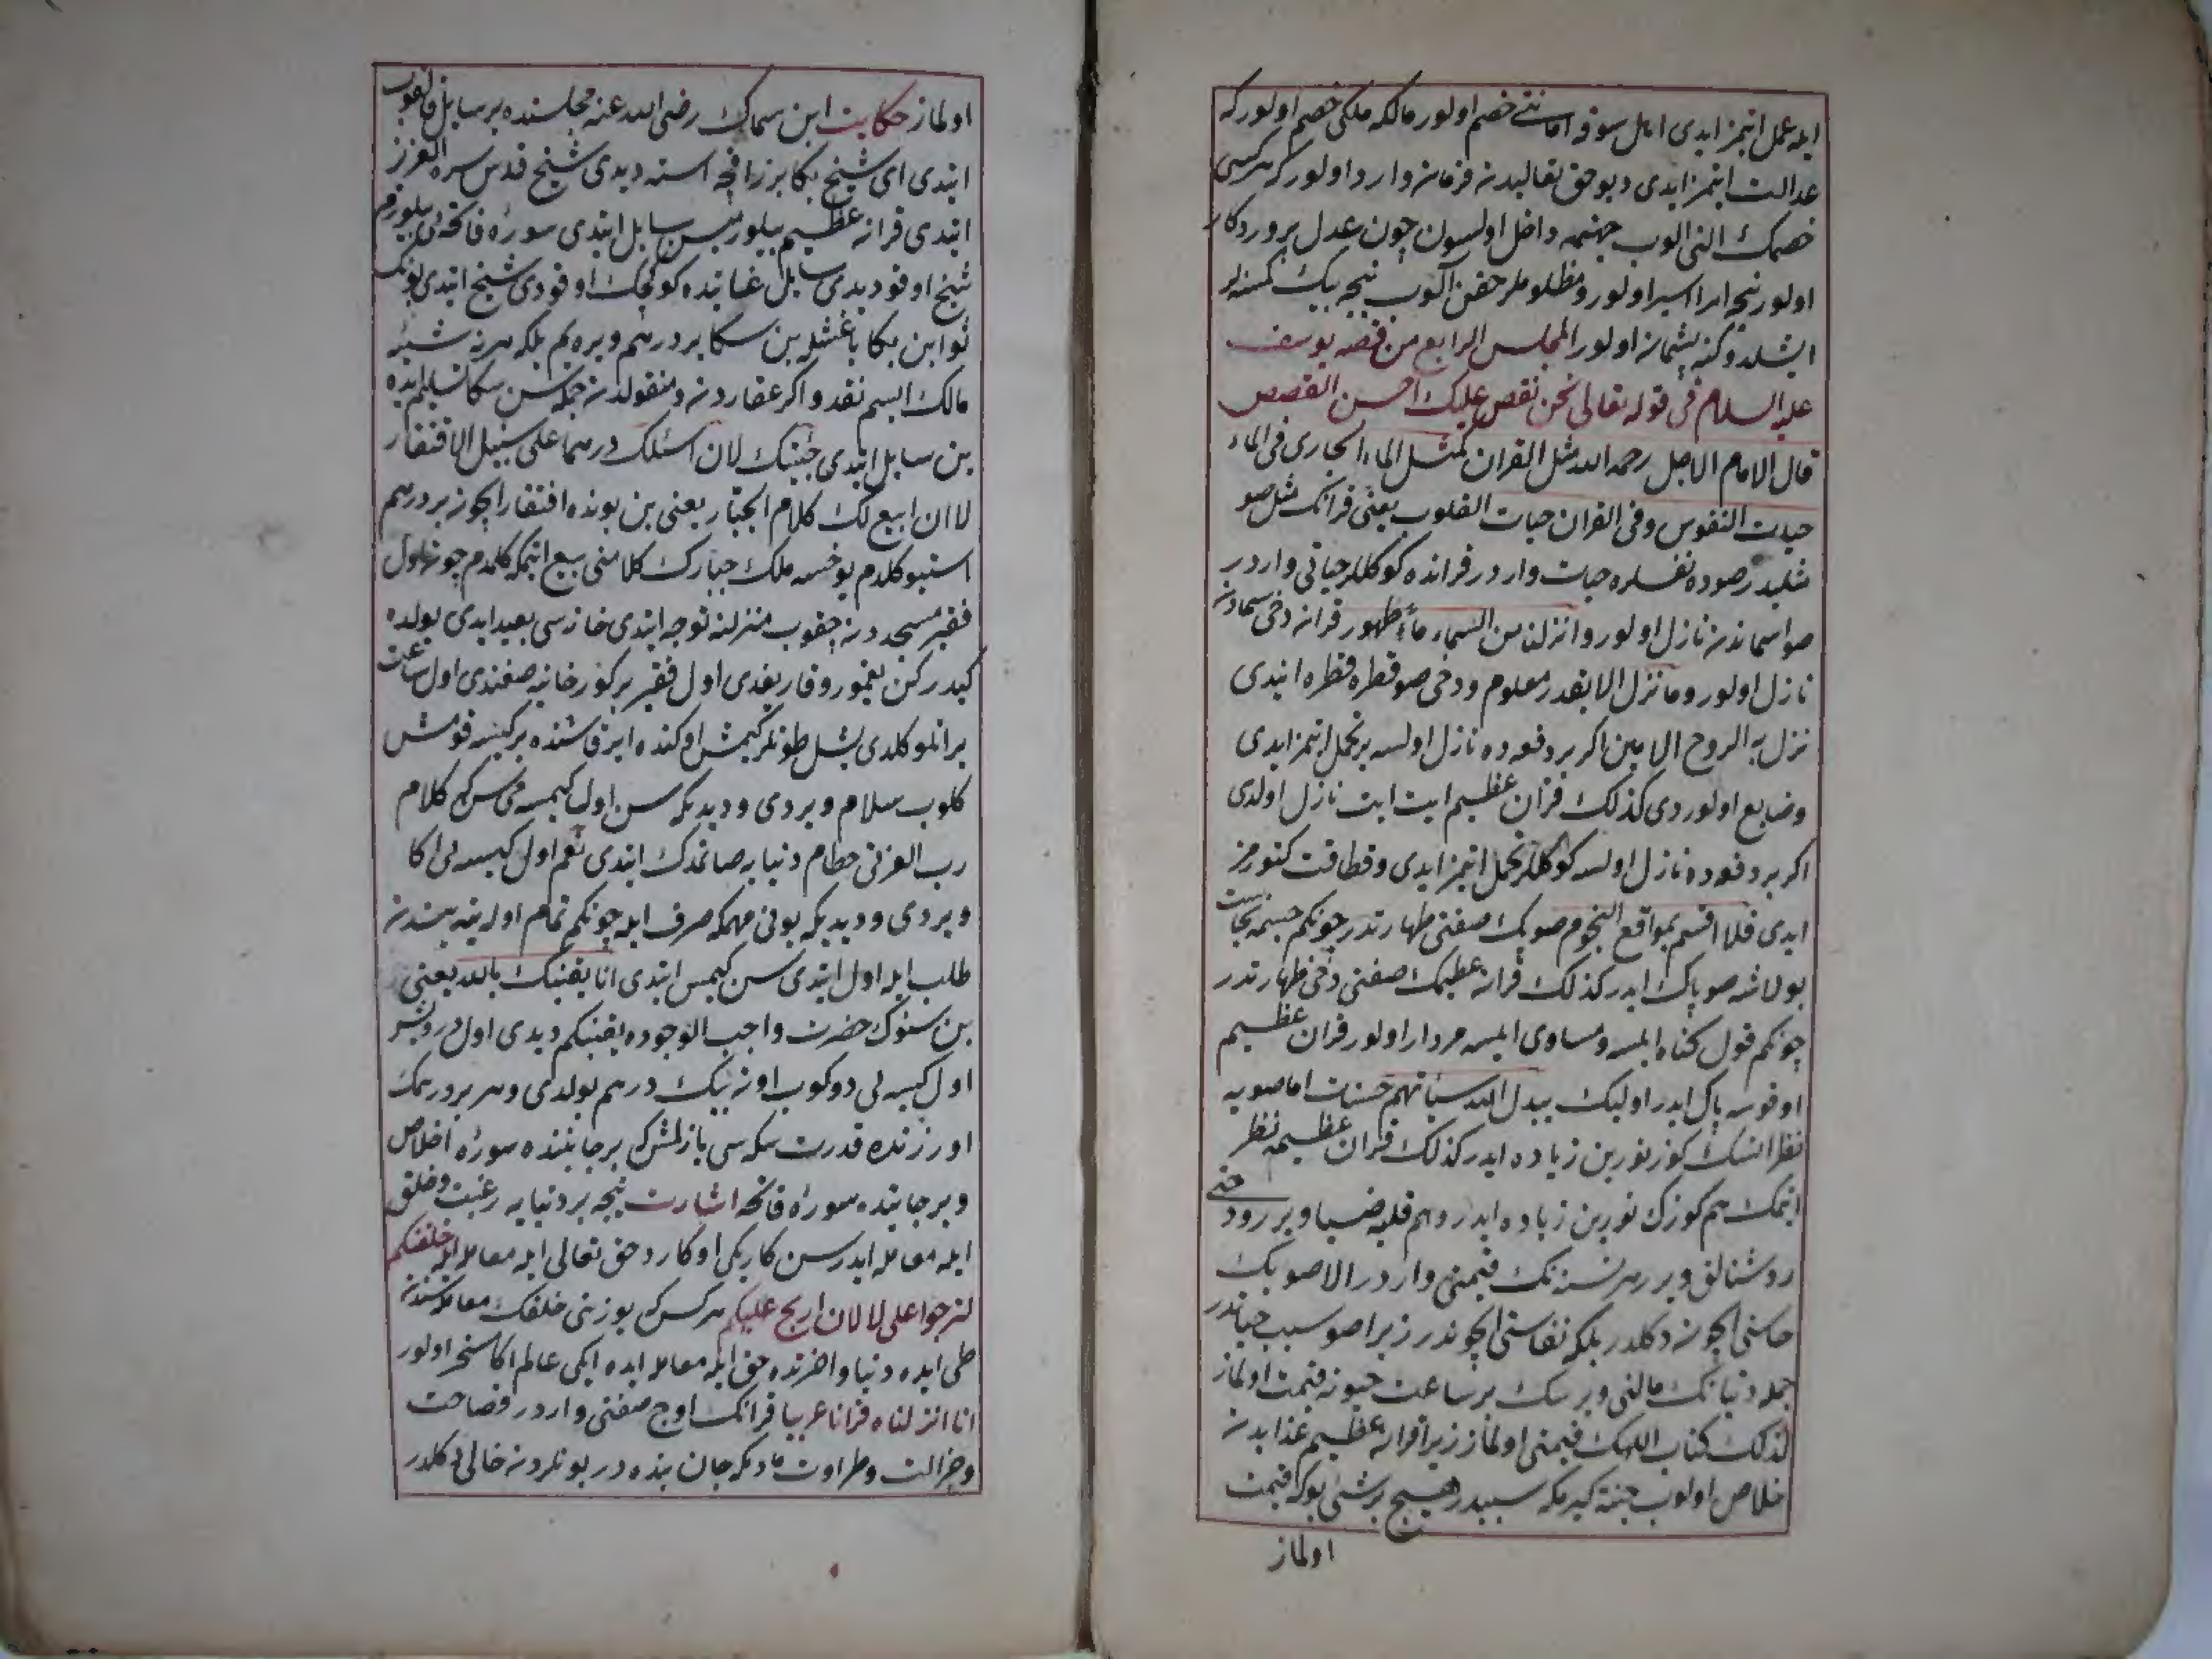 ایله عمل ایتمز ایدی اهل سوق امانتی خصم اولور مالکه ملکی خصم اولور که
عدالت ایتمز ایدی دیو حق تعالیدن فرمان وارد اولور که هر کسی
خصمک النی الوب جهنمه داخل اولسون چون عدل پروردکار
اولور نیجه امرا اسیر اولور و مظلوملر حقن آلوب نیجه بیک کمسنه لر
ایشلدوکنه پشمان اولور المجلس الرابع من قصه یوسف
علیه السلام فی قوله تعالی نحن نقص علیک احسن القصص
قال الامام الاجل رحمه الله مثل القران کمثل الماء الجاری فی الماء
حیات النفوس وفی القران حیات القلوب یعنی قرانک مثل صو
مثلیدر صوده نفسلره حیات واردر قرانده کوکللر حیاتی واردر
صو اسماندن نازل اولور وانزلنا من السماء ماء طهور قران دخی سمادن
نازل اولور وما ننزل الا بقدر معلوم ودخی صو قطره قطره ایندی
نزل به الروح الامین اکر بر دفعه ده نازل اولسه یر تحمل ایتمز ایدی
وضایع اولوردی کذلک قران عظیم ایت ایت نازل اولدی
اکر بر دفعه ده نازل اولسه کوکللر تحمل ایتمز ایدی و قطاقت کتورمز
ایدی فلا اقسم بمواقع النجوم صویک صفتی طهارتدر چونکم جسمه نجاست
بولاشه صو پاک ایدر کذلک قران عظیمک صفتی دخی طهارتدر
چونکم قول کناه ایلسه و مساوی ایلسه مردار اولور قران عظیم
اوقوسه پاک ایدر اولیک یبدل الله سیاتهم حسنات اما صویه
نظر اتسک کوز نورین زیاده ایدر کذلک قران عظیمه نظر
ایتمک هم کوزک نورین زیاده ایدر و هم قلبه ضیا ویررود حتی
روشنالق ویرر هر نسنه نک قیمتی واردر الا صویک
خاستی ایچون دکلدر بلکه نفاستی ایچوندر زیرا صو سبب حیاتدر
جمله دنیانک مالنی ویرسک بر ساعت حیوته قیمت اولماز
کذلک کتاب اللهک قیمتی اولماز زیرا قران عظیم عذابدن
خلاص اولوب جنته کیرمکه سببدر هیچ بر شی بوکه قیمت
اولماز
اولماز حکایت ابن سماک رضی الله عنه مجلسنده بر سایل قالقوب
ایتدی ای شیخ بکا بر زاقچه استه دیدی شیخ قدس سره العزیز
ایتدی قران عظیم بیلورمیسن سایل ایتدی سورۀ فاتحه یی بیلورم
شیخ اوقو دیدی سایل غایتده کوکچک اوقودی شیخ ایتدی بونک
ثوابن بکا باغشله بن سکا بر درهم ویره یم بلکه هر نه شیئه
مالک ایسم نقد و اکر عقاردن و منقولدن جمله سن سکا تسلیم ایده
ین سایل ایتدی جئتک لان اسئلک درهما علی سبیل الافتقار
لا ان ابیع لک کلام الجبار یعنی بن بونده افتقار ایچون بر درهم
استیو کلدم یوخسه ملک جبارک کلامنی بیع ایتمکه کلمدم چون اول
فقیر مسجددن چقوب منزلنه توجه ایتدی خانه سی بعید ایدی یولده
کیدرکن یغمور و قار یغدی اول فقیر بر کوزخانیه صغندی اول ساعت
بر اتلو کلدی یشل طونلر کیمش اوکنده ایر قاشنده بر کیسه قومش
کلوب سلام ویردی و دیدیکه سن اول کیمسه می سن که کلام
رب العزتی حطام دنیایه صاتمدک ایتدی نعم اول کیسه یی اکا
ویردی و دیدیکه بونی مهمکه صرف ایله چونکم تمام اوله ینه بیندن
طلب ایله اول ایتدی سن کیمسن ایتدی انا یقینک بالله یعنی
بن سنوک حضرت واجب الوجوده یقینکم دیدی اول درویش
اول کیسه یی دوکوب اون بیک درهم بولدی و هر بر درهمک
اورزنده قدرت سکه سی یازلمش که بر جانبنده سورۀ اخلاص
و بر جانبنده سورۀ فاتحه اشارت نیجه بر دنیایه رغبت و خلق
ایله معامله ایدرسن کار یکی اوکارد حق تعالی ایله معامله ایله خلقتکم
لتربحوا علی لا لان اربح علیکم هر کس که یوزنی خلقک معامله سندن
طی ایده دنیا و اخرتده حق ایله معامله ایده ایکی عالم اکا مسخر اولور
انا انزلناه قرانا عربیا قرانک اوچ صفتی واردر فصاحت
و جزالت و طراوت مادیکه جان تنده در بونلردن خالی دکلدر